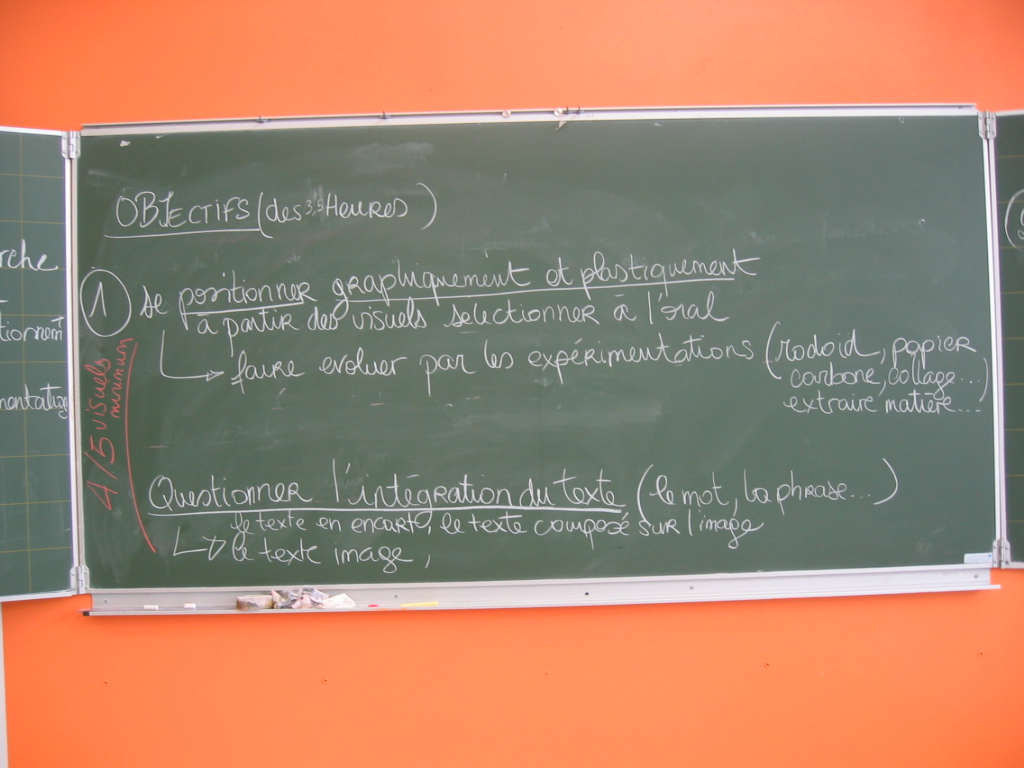 OBJECTIFS (des 3,5 Heures)
1 se positionner graphiquement et plastiquement
à partir des visuels selectionner à l'oral
faire evoluer par les expérimentations (rodoid, papier
carbone, collage...)
extraire matière...
4/5 visuels
minimum
Questionner l'intégration du texte (le mot, la phrase...)
le texte en encarts, le texte composé sur l'image
le texte image,
rche